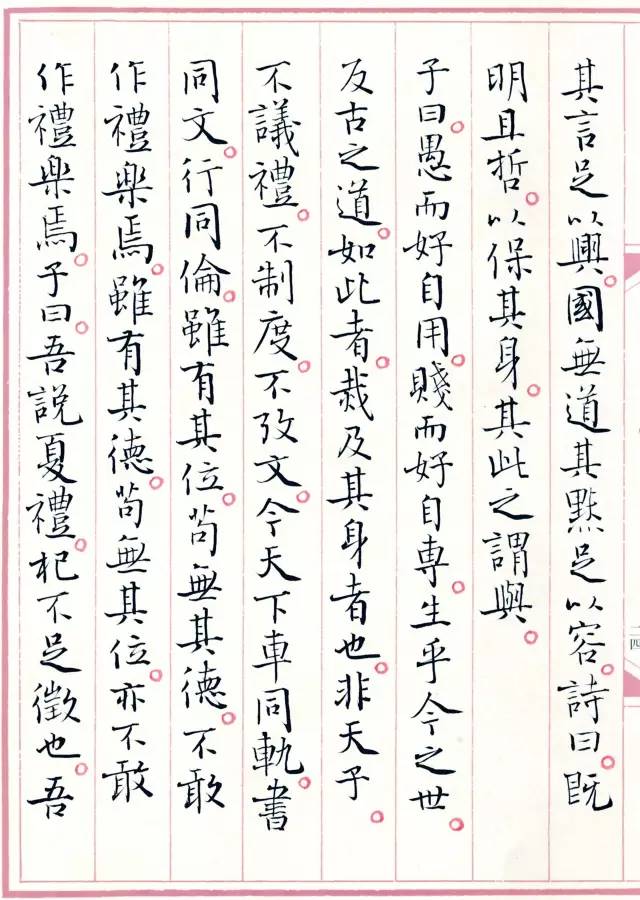 其言足以興。國無道其黙足以容。詩曰。既
明且哲。以保其身。其此之謂與。
子曰。愚而好自用。賤而好自専。生乎今之世。
反古之道。如此者。烖及其身者也。非天子。
不議禮。不制度。不攷文。今天下車同軌。書
同文。行同倫。雖有其位。苟無其德。不敢
作禮樂焉。雖有其德。苟無其位。亦不敢
作禮樂焉。子曰。吾説夏禮。杞不足徵也。吾
四